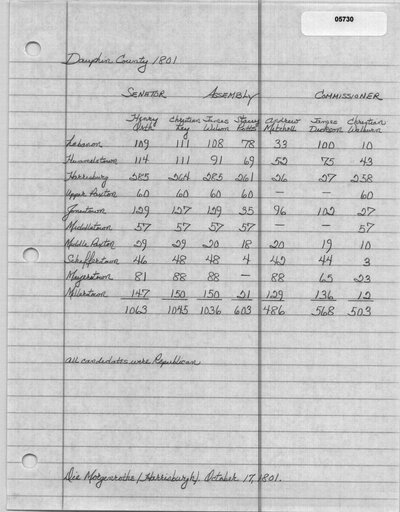 05730
Dauphin County 1801
SENATOR ASSEMBLY COMMISSIONER
Henry Christian James Stacy Andrew James Christian
Orth Ley Wilson Potts Mitchell Dickson Walburn
Lebanon 109 111 108 78 33 100 10
Hummelstown 114 111 91 69 52 75 43
Harrisburg 285 264 285 261 26 27 258
Upper Paxton 60 60 60 60 — — 60
Jonestown 129 127 129 35 96 102 27
Middletown 57 57 57 57 — — 57
Middle Paxton 29 29 20 18 20 19 10
Schafferstown 46 48 48 4 42 44 3
Meyerstown 81 88 88 — 88 65 23
Millerstown 147 150 150 21 129 136 12
1063 1045 1036 603 486 568 503
All candidates were Republican
Die Morgenrothe (Harrisburgh). October 17, 1801.